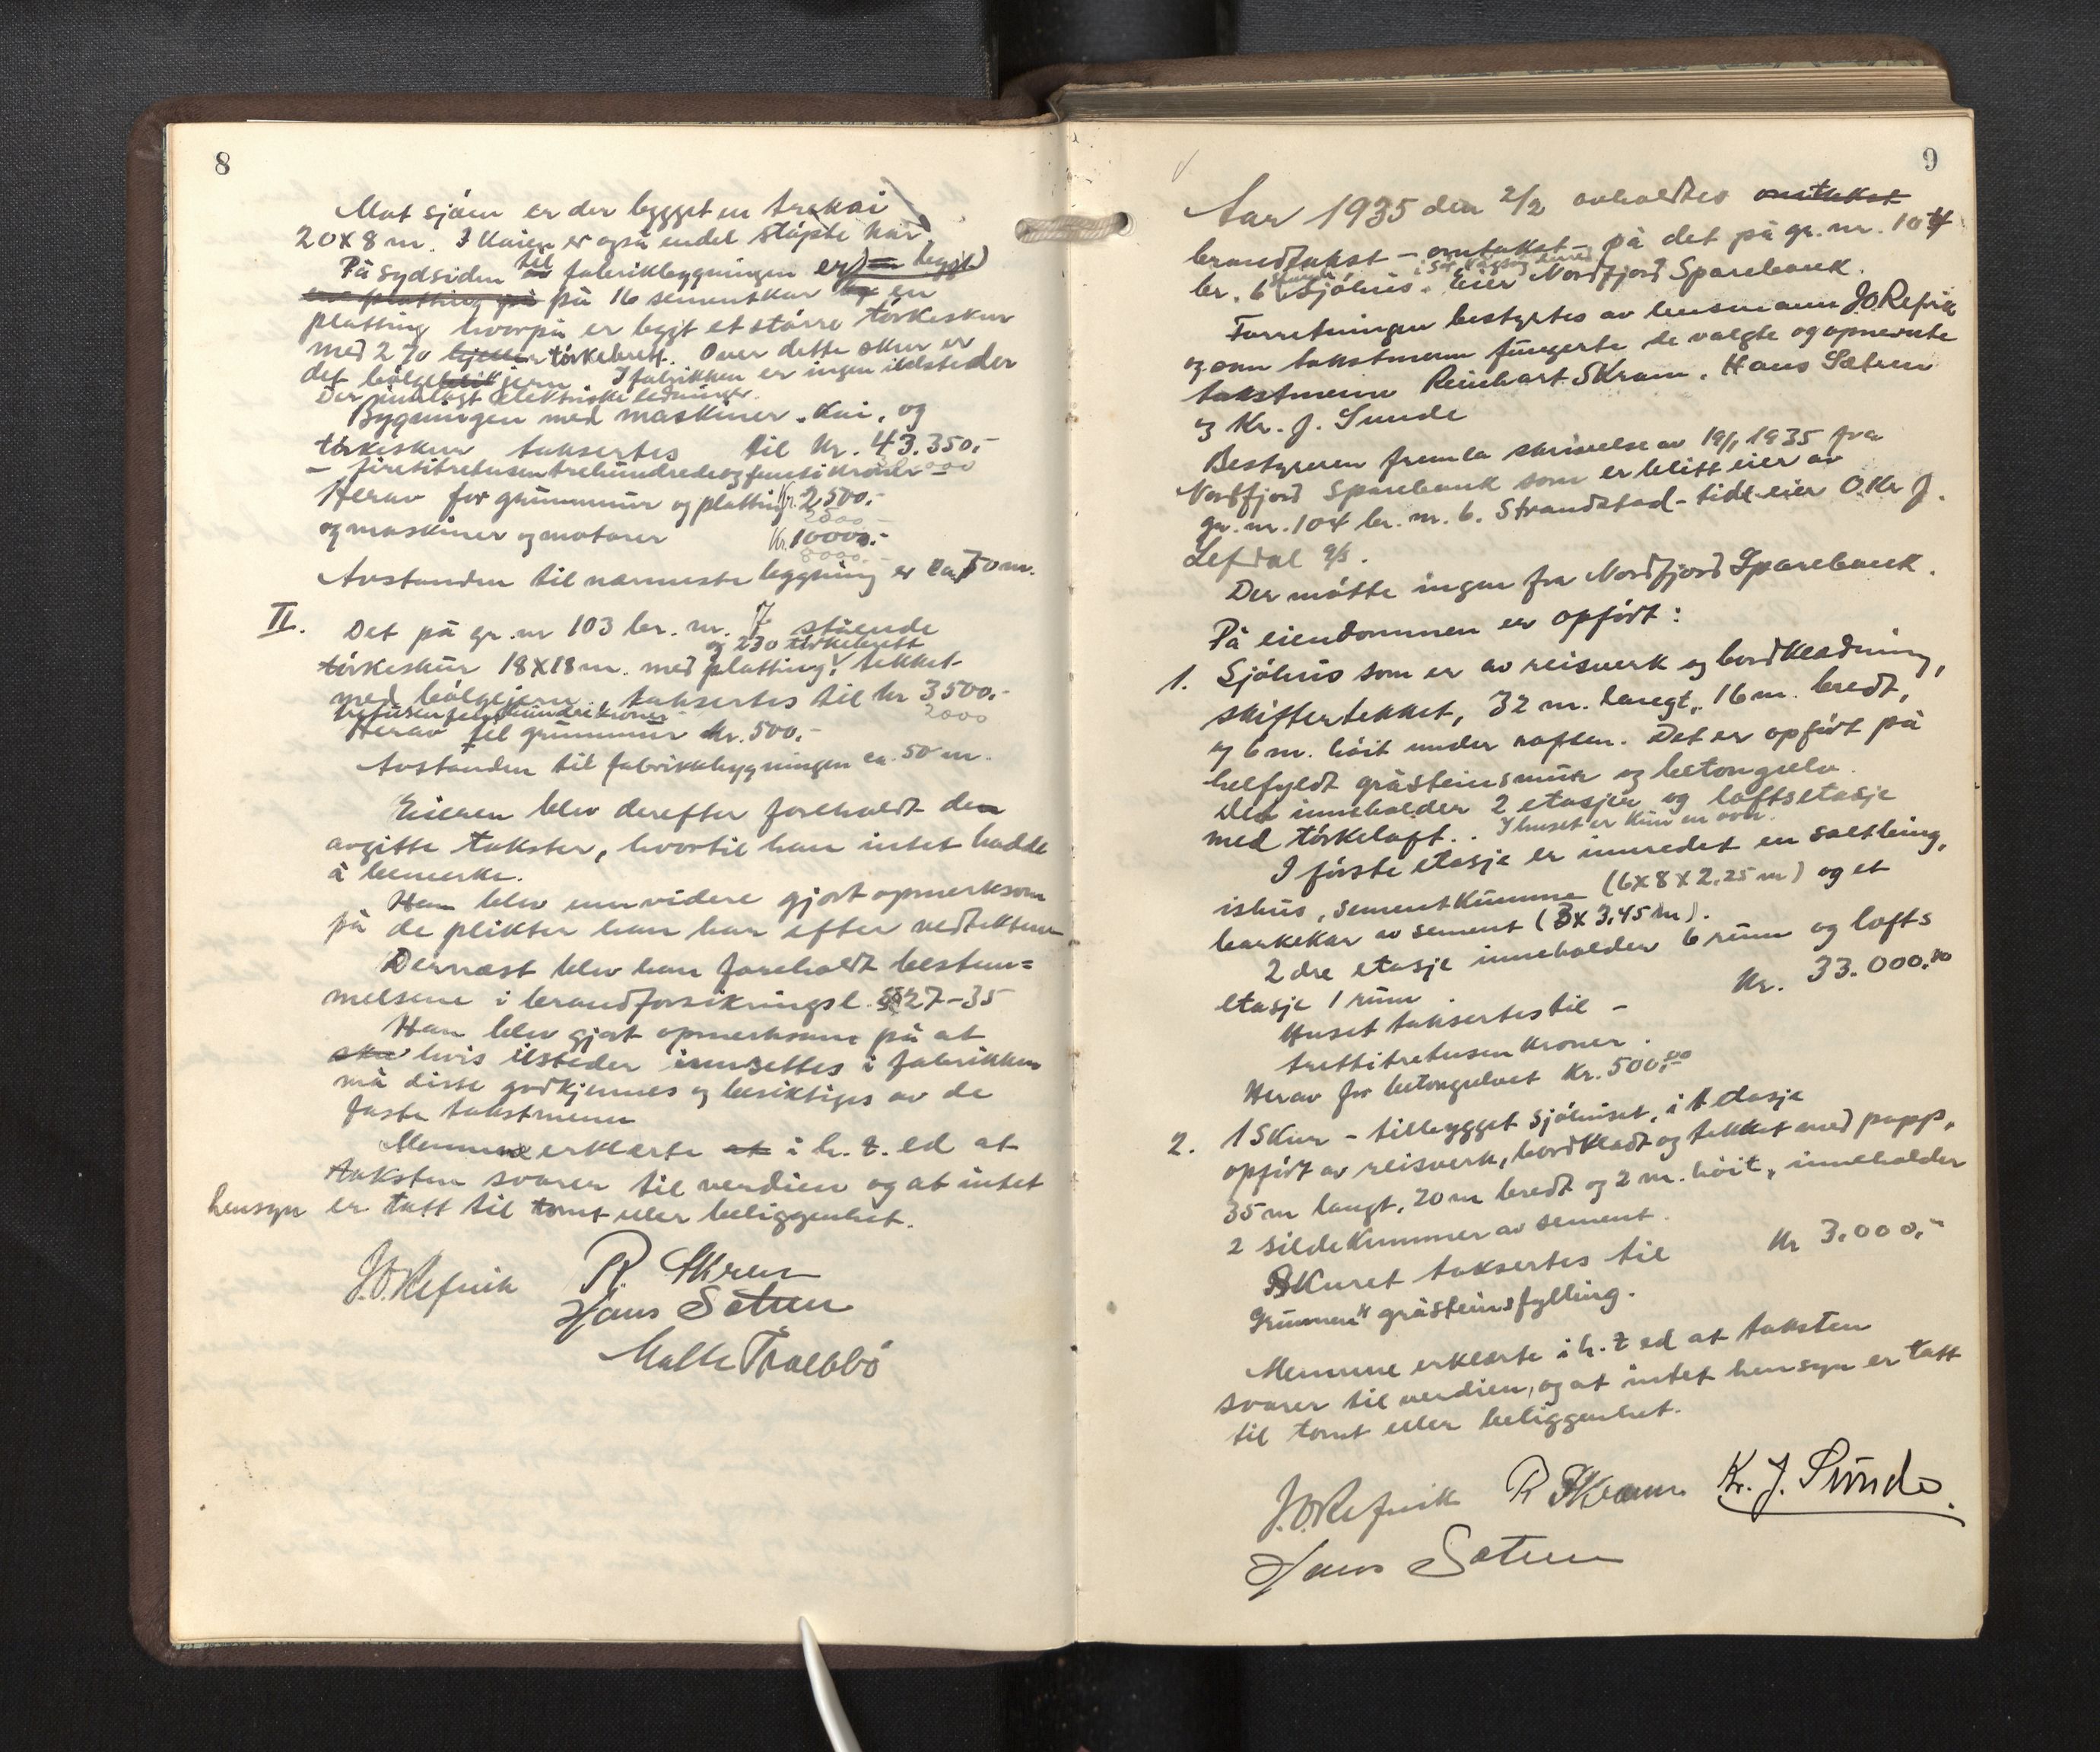 8
Mot sjøen er der bygget en trekai
20x8 m. I kaien er også endel støpte kar
På sydsiden til fabrikbygningen er bygt
en platting på på 16 sementkar en
platting hvorpå er bygt et større tørkeskur
med 270 hjeller tørkebrett. Over dette skur er
det bølgeblikjern I fabrikken er ingen ildsteder
Der innlagt elektriske ledninger.
Bygningen med maskiner. Kai, og
tørkeskur taksertes til kr. 43.350,-
- firetitretusentrehundredeogfemtikroner -
Herav for grunnmur og platting Kr. 2,500.-
2500 -
og maskiner og motorer Kr. 10000.-
8000. -
Avstanden til nærmeste bygning er ca 50 m.
II. Det på gr. nr 103 br. nr. 7 stående
og 230 tørkebrett
tørkeskur 18x18 m. med platting tekket
med bølgejern. taksertes til kr 3500.-
tretusenfemhundrekroner 2000
Herav til grunnmur kr. 500.-
Avstanden til fabrikkbygningen ca. 50 m.
Eieren blev derefter foreholdt den
avgitte takster, hvortil han intet hadde
å bemerke.
Han blev envidere gjort opmerksom
på de plikter han har efter vedtektene
Dernæst blev han foreholdt bestem=
melsene i brandforsikringsl. §§ 27-35
Han blev gjort opmerksom på at
ska hvis ilsteder innsettes i fabrikken
må disse godkjennes og besiktiges av de
faste takstmenn
Mennene erklærte at i h. t. ed at
taksten svarer til verdien og at intet
hensyn er tatt til tomt eller beliggenhet.
J.O. Refvik R. Skram
Hans Sætren
Malte Trælbø
9
Aar 1935 den 2/2 avholdtes omtakst
brandtakst - omtakst - på det på gr. nr. 104
br. 6 Sjøhus. Eier Nordfjord Sparebank.
Forretningen bestyrtes av lensmann J.O. Refvik
og som takstmenn fungerte de valgte og opnevnte
takstmenn Reinhart Skram, Hans Sætren
og Kr. J. Sunde
Bestyreren fremla skrivelse av 19/1 1935 fra
Nordfjord Sparebank som er blitt eier av
gr. nr. 104 br. nr. 6. Strandstad - tidl. eier O. Kr J.
Lefdal
Der møtte ingen fra Nordfjord Sparebank.
På eiendommen er opført:
1. Sjøhus som er av reisverk og bordkledning,
skiffertekket, 32 m. langt, 16 m. bredt,
og 6 m. høit under raften. Det er opført på
helfyldt gråsteinsmur og betongulv.
Den inneholder 2 etasjer og loftsetasje
med tørkeloft. . I huset er kun en ovn.
I første etasje er innredet en saltbing,
ishus, sementkumme (6x8x2.25 m) og et
barkekar av sement (3x3,45 m).
2dre etasje inneholder 6 rum og lofts
etasje 1 rum.
Huset taksertes til - Kr. 33.000.00
trettitretusen kroner.
Herav for betongulvet Kr. 500,00
2. 1 Skur - tilbygget sjøhuset, i 1 etasje
opført av reisverk, bordkledt og tekket med papp,
35 m langt, 20 m bredt og 2 m. høit, inneholder
2 sildekummer av sement.
Skuret taksertes til kr 3.000,-
Grunnen gråsteinsfylling.
Mennene erklærte i h. t ed at taksten
svarer til verdien, og at intet hensyn er tatt
til tomt eller beliggenhet.
J.O. Refvik R Skram Kr. J. Sunde.
Hans Sætren